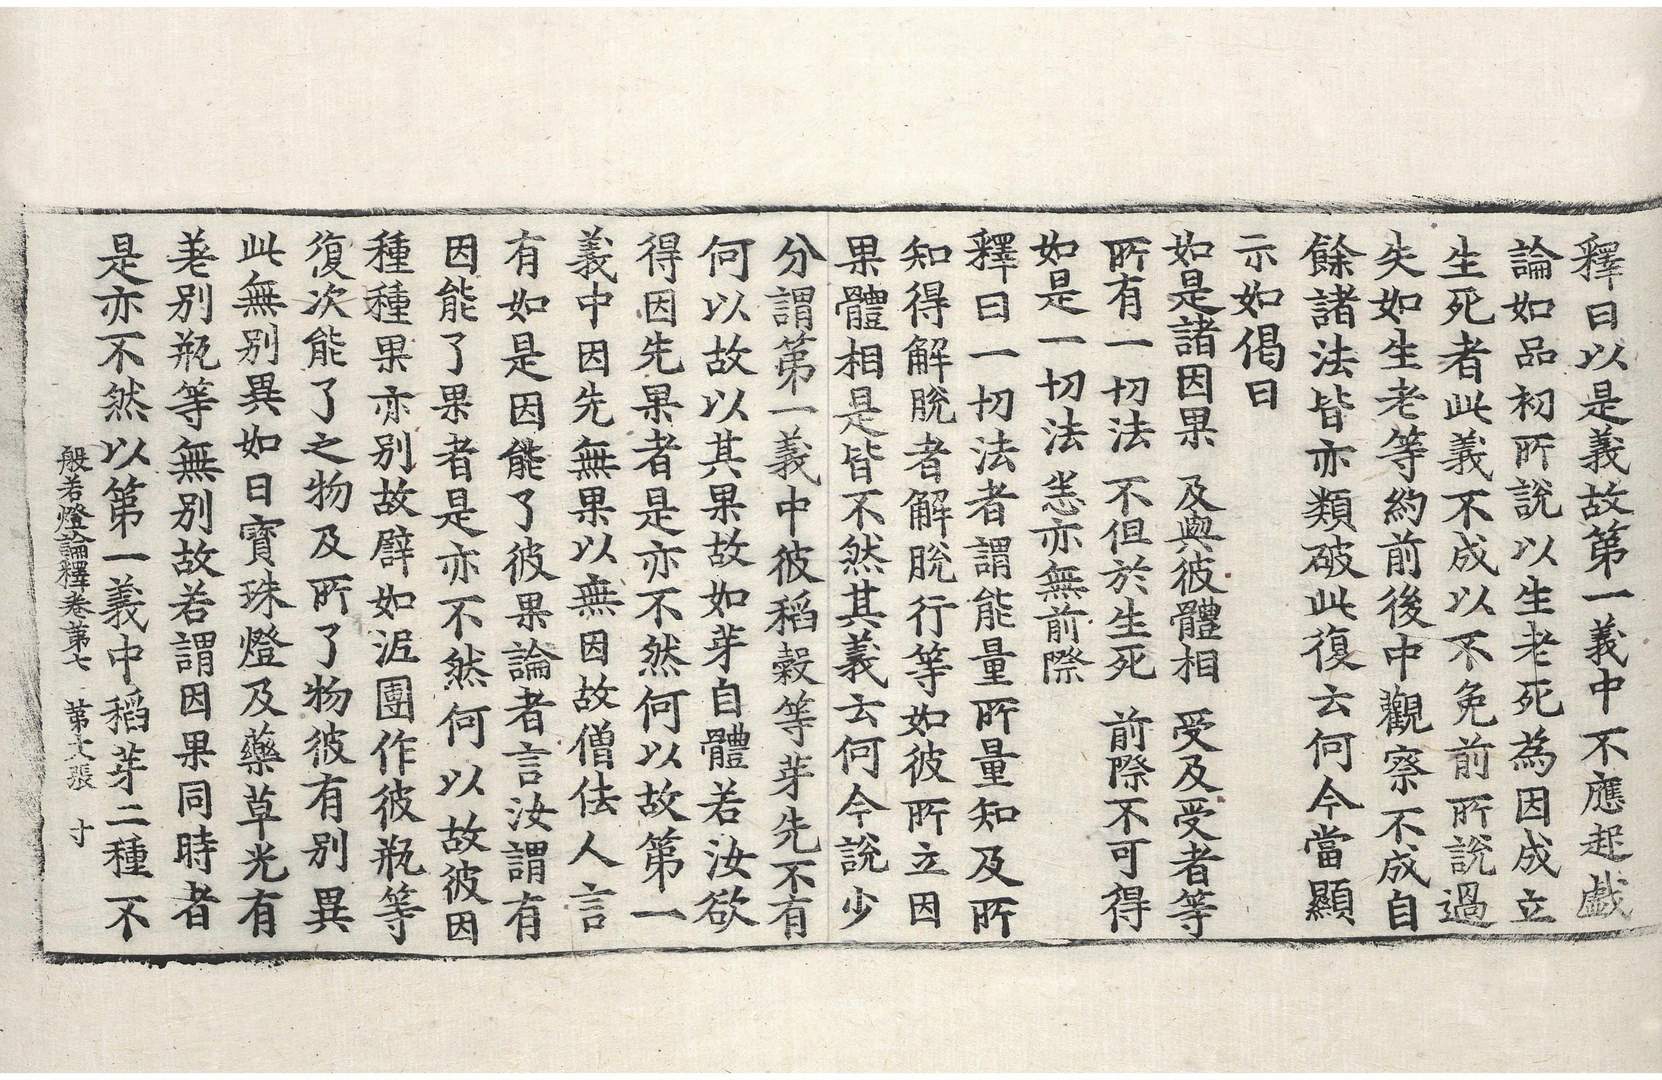 釋曰以是義故第一義中不應起戲
論如品初所說以生老死為因成立
生死者此義不成以不免前所說過
失如生老等約前後中觀察不成自
餘諸法皆亦類破此復云何今當顯
示如偈曰
如是諸因果 及與彼體相 受及受者等
所有一切法 不但於生死 前際不可得
如是一切法 悉亦無前際
釋曰一切法者謂能量所量知及所
知得解脫者解脫行等如彼所立因
果體相是皆不然其義云何今說少
分謂第一義中彼稻穀等芽先不有
何以故以其果故如芽自體若汝欲
得因先果者是亦不然何以故第一
義中因先無果以無因故僧佉人言
有如是因能了彼果論者言汝謂有
因能了果者是亦不然何以故彼因
種種果亦別故譬如泥團作彼瓶等
復次能了之物及所了物彼有別異
此無別異如日寶珠燈及藥草光有
差別瓶等無別故若謂因果同時者
是亦不然以第一義中稻芽二種不
般若燈論釋卷第七 第六張 寸